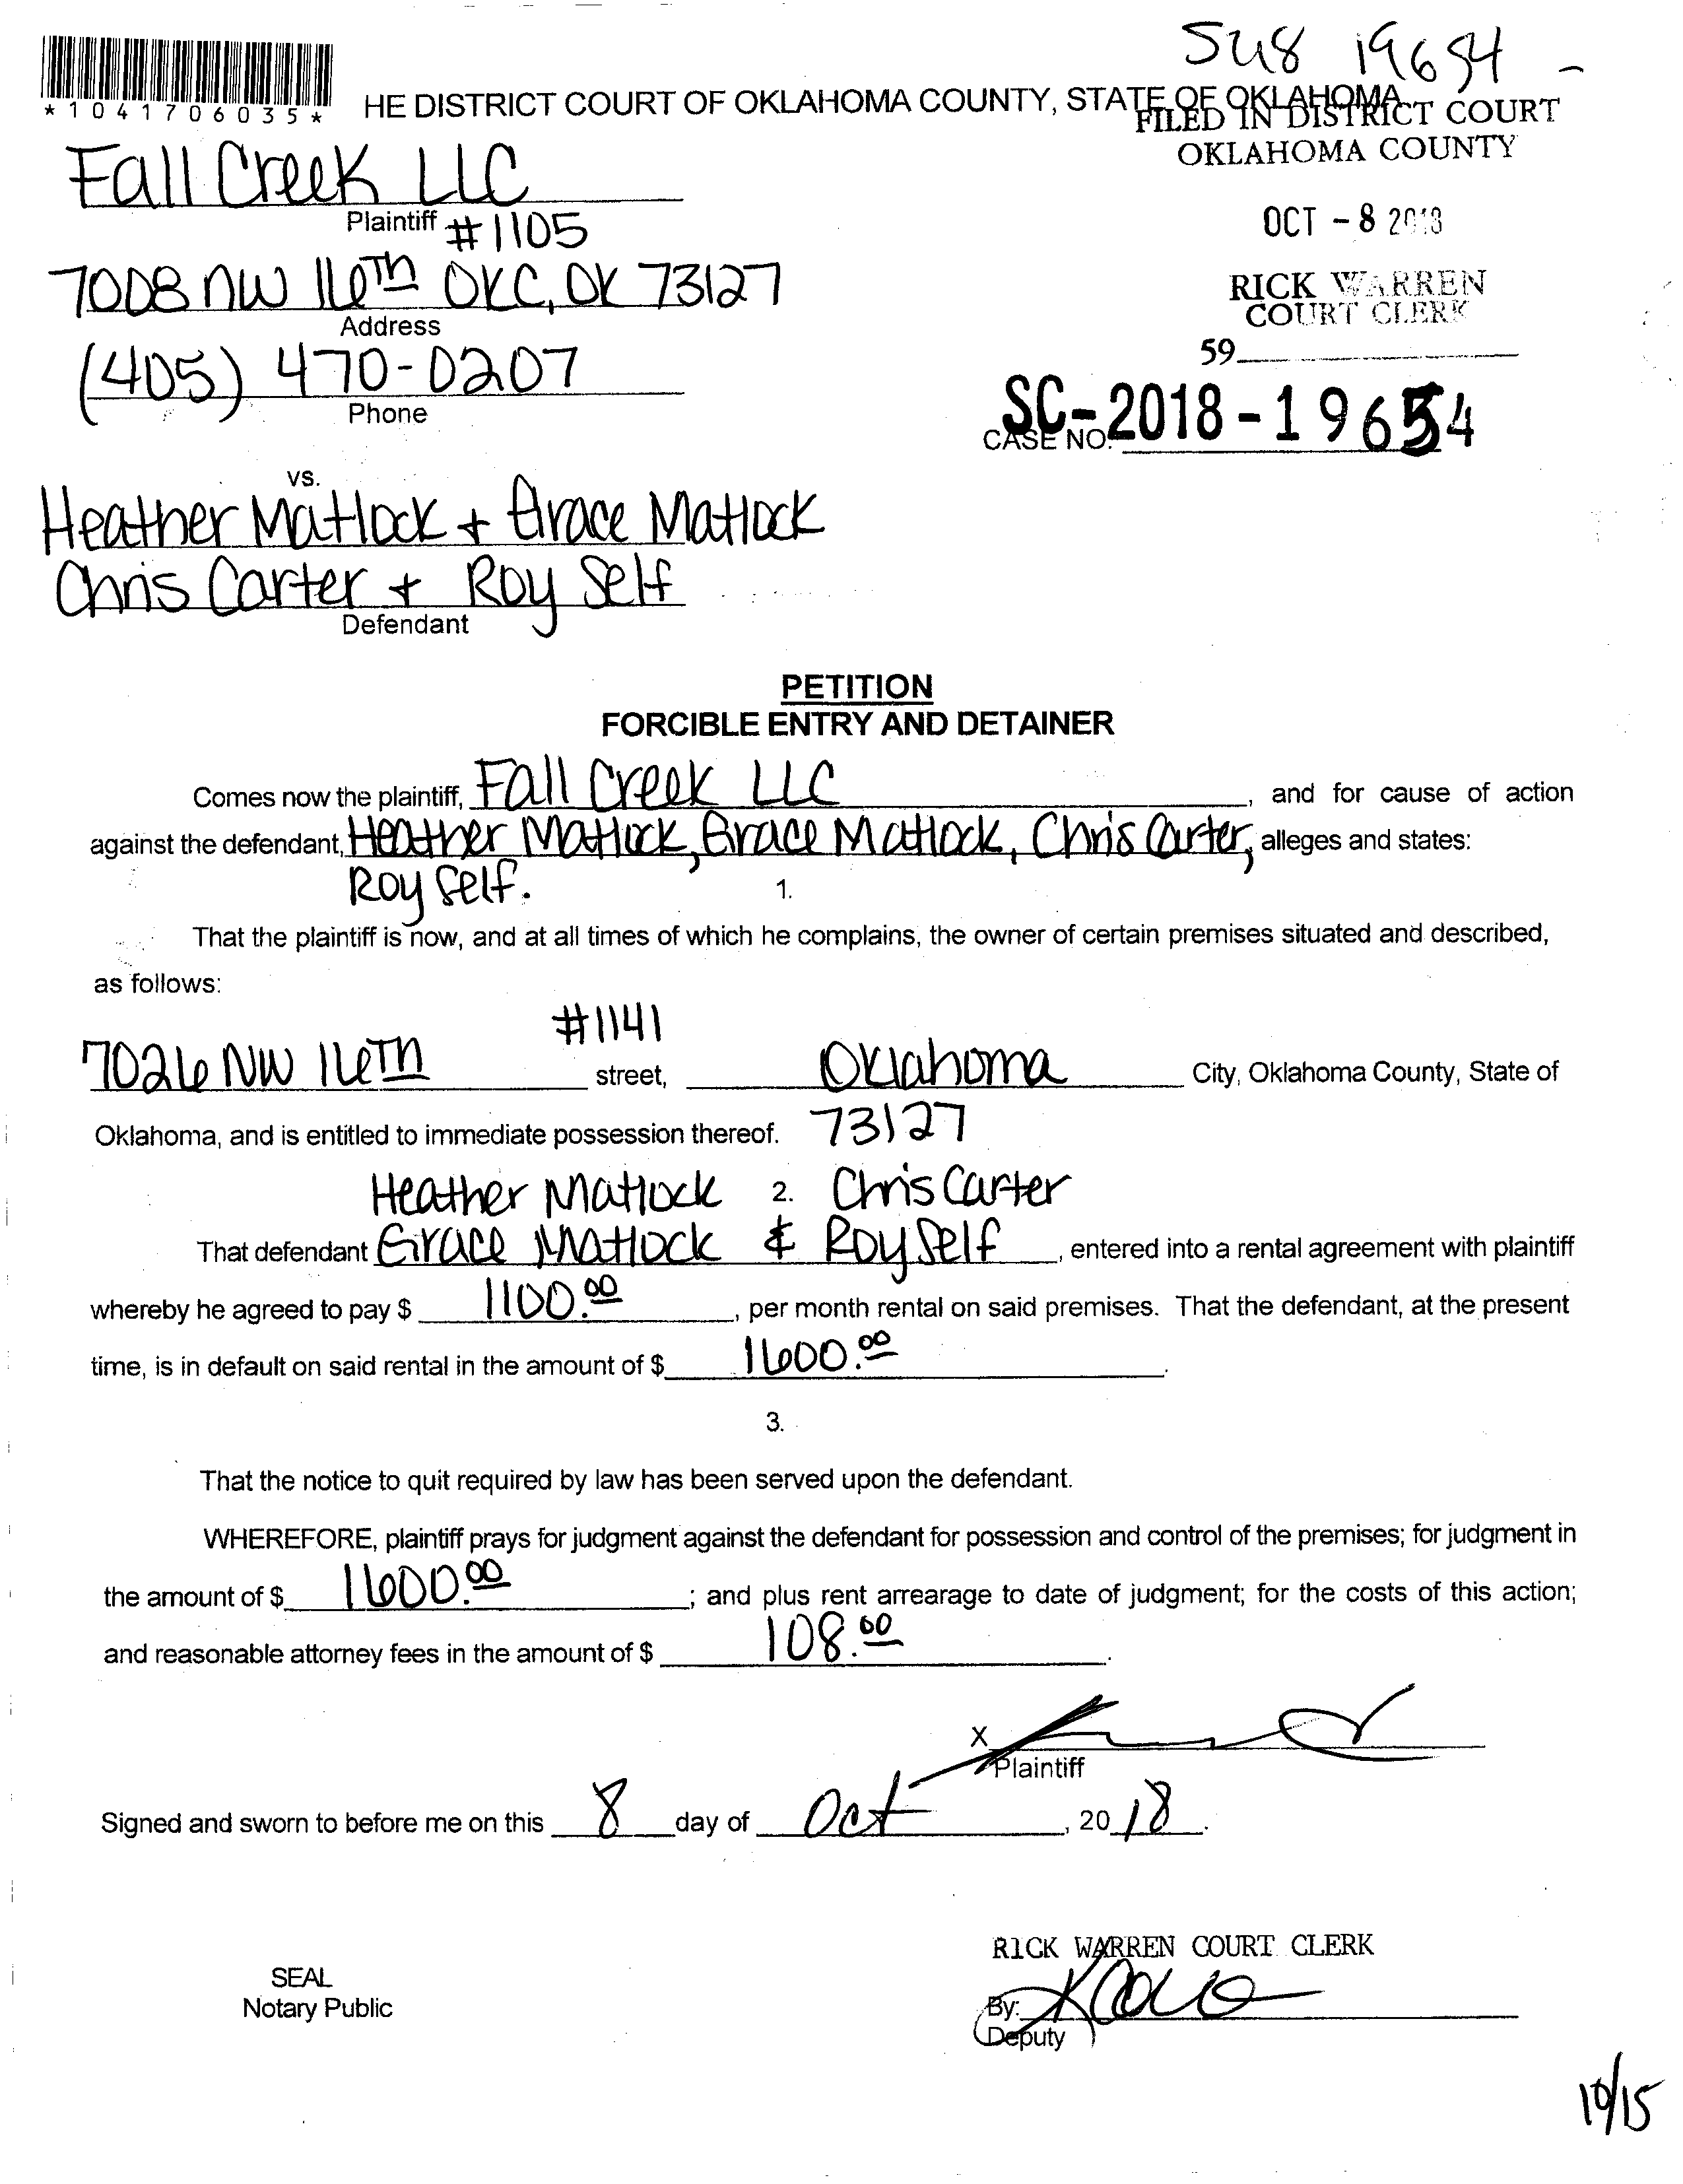 SU8 19654 -
*1041706035*
HE DISTRICT COURT OF OKLAHOMA COUNTY, STATE OF OKLAHOMA
FILED IN DISTRICT COURT
OKLAHOMA COUNTY
Fall Creek LLC
Plaintiff #1105
OCT - 8 2018
7008 NW 16th OKC, OK 73127
Address
RICK WARREN
COURT CLERK
(405) 470-0207
Phone
59
SC-2018-19654
CASE NO.
vs.
Heather Matlock + Grace Matlock
Chris Carter + Roy Self
Defendant
PETITION
FORCIBLE ENTRY AND DETAINER
Comes now the plaintiff, Fall Creek LLC, and for cause of action
against the defendant, Heather Matlock, Grace Matlock, Chris Carter, alleges and states:
Roy Self.
1.
That the plaintiff is now, and at all times of which he complains, the owner of certain premises situated and described,
as follows:
#1141
7026 NW 16th street, Oklahoma City, Oklahoma County, State of
Oklahoma, and is entitled to immediate possession thereof. 73127
Heather Matlock 2. Chris Carter
That defendant Grace Matlock & Roy Self, entered into a rental agreement with plaintiff
whereby he agreed to pay $ 1100.00, per month rental on said premises. That the defendant, at the present
time, is in default on said rental in the amount of $ 1600.00.
3.
That the notice to quit required by law has been served upon the defendant.
WHEREFORE, plaintiff prays for judgment against the defendant for possession and control of the premises; for judgment in
the amount of $ 1600.00; and plus rent arrearage to date of judgment; for the costs of this action;
and reasonable attorney fees in the amount of $ 108.00.
X
Plaintiff
Signed and sworn to before me on this 8 day of Oct, 2018.
RICK WARREN COURT CLERK
SEAL
Notary Public
By:
Deputy
10/15